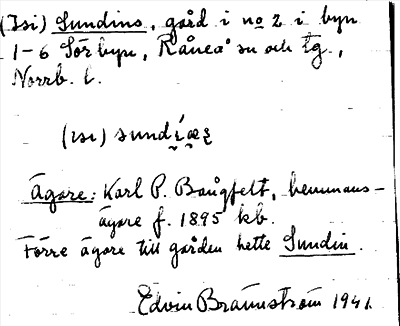 (Isi) Sundins, gård i no 2 i byn
1-6 Sörbyn, Råneå sn och tg.,
Norrb. l.
(ɪsɪ) sund
Ägare: Karl P. Baugfelt, hemmans-
ägare f. 1895 kb.
Förre ägare till gården hette Sundin.
Edvin Brännström 1941.